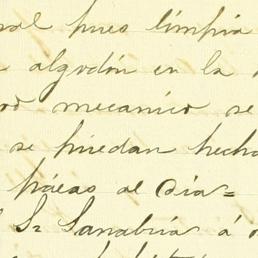 pues limpia
algodón en la
mecanico se
se puedan hecha
al Dia=
Sr Sanabria á